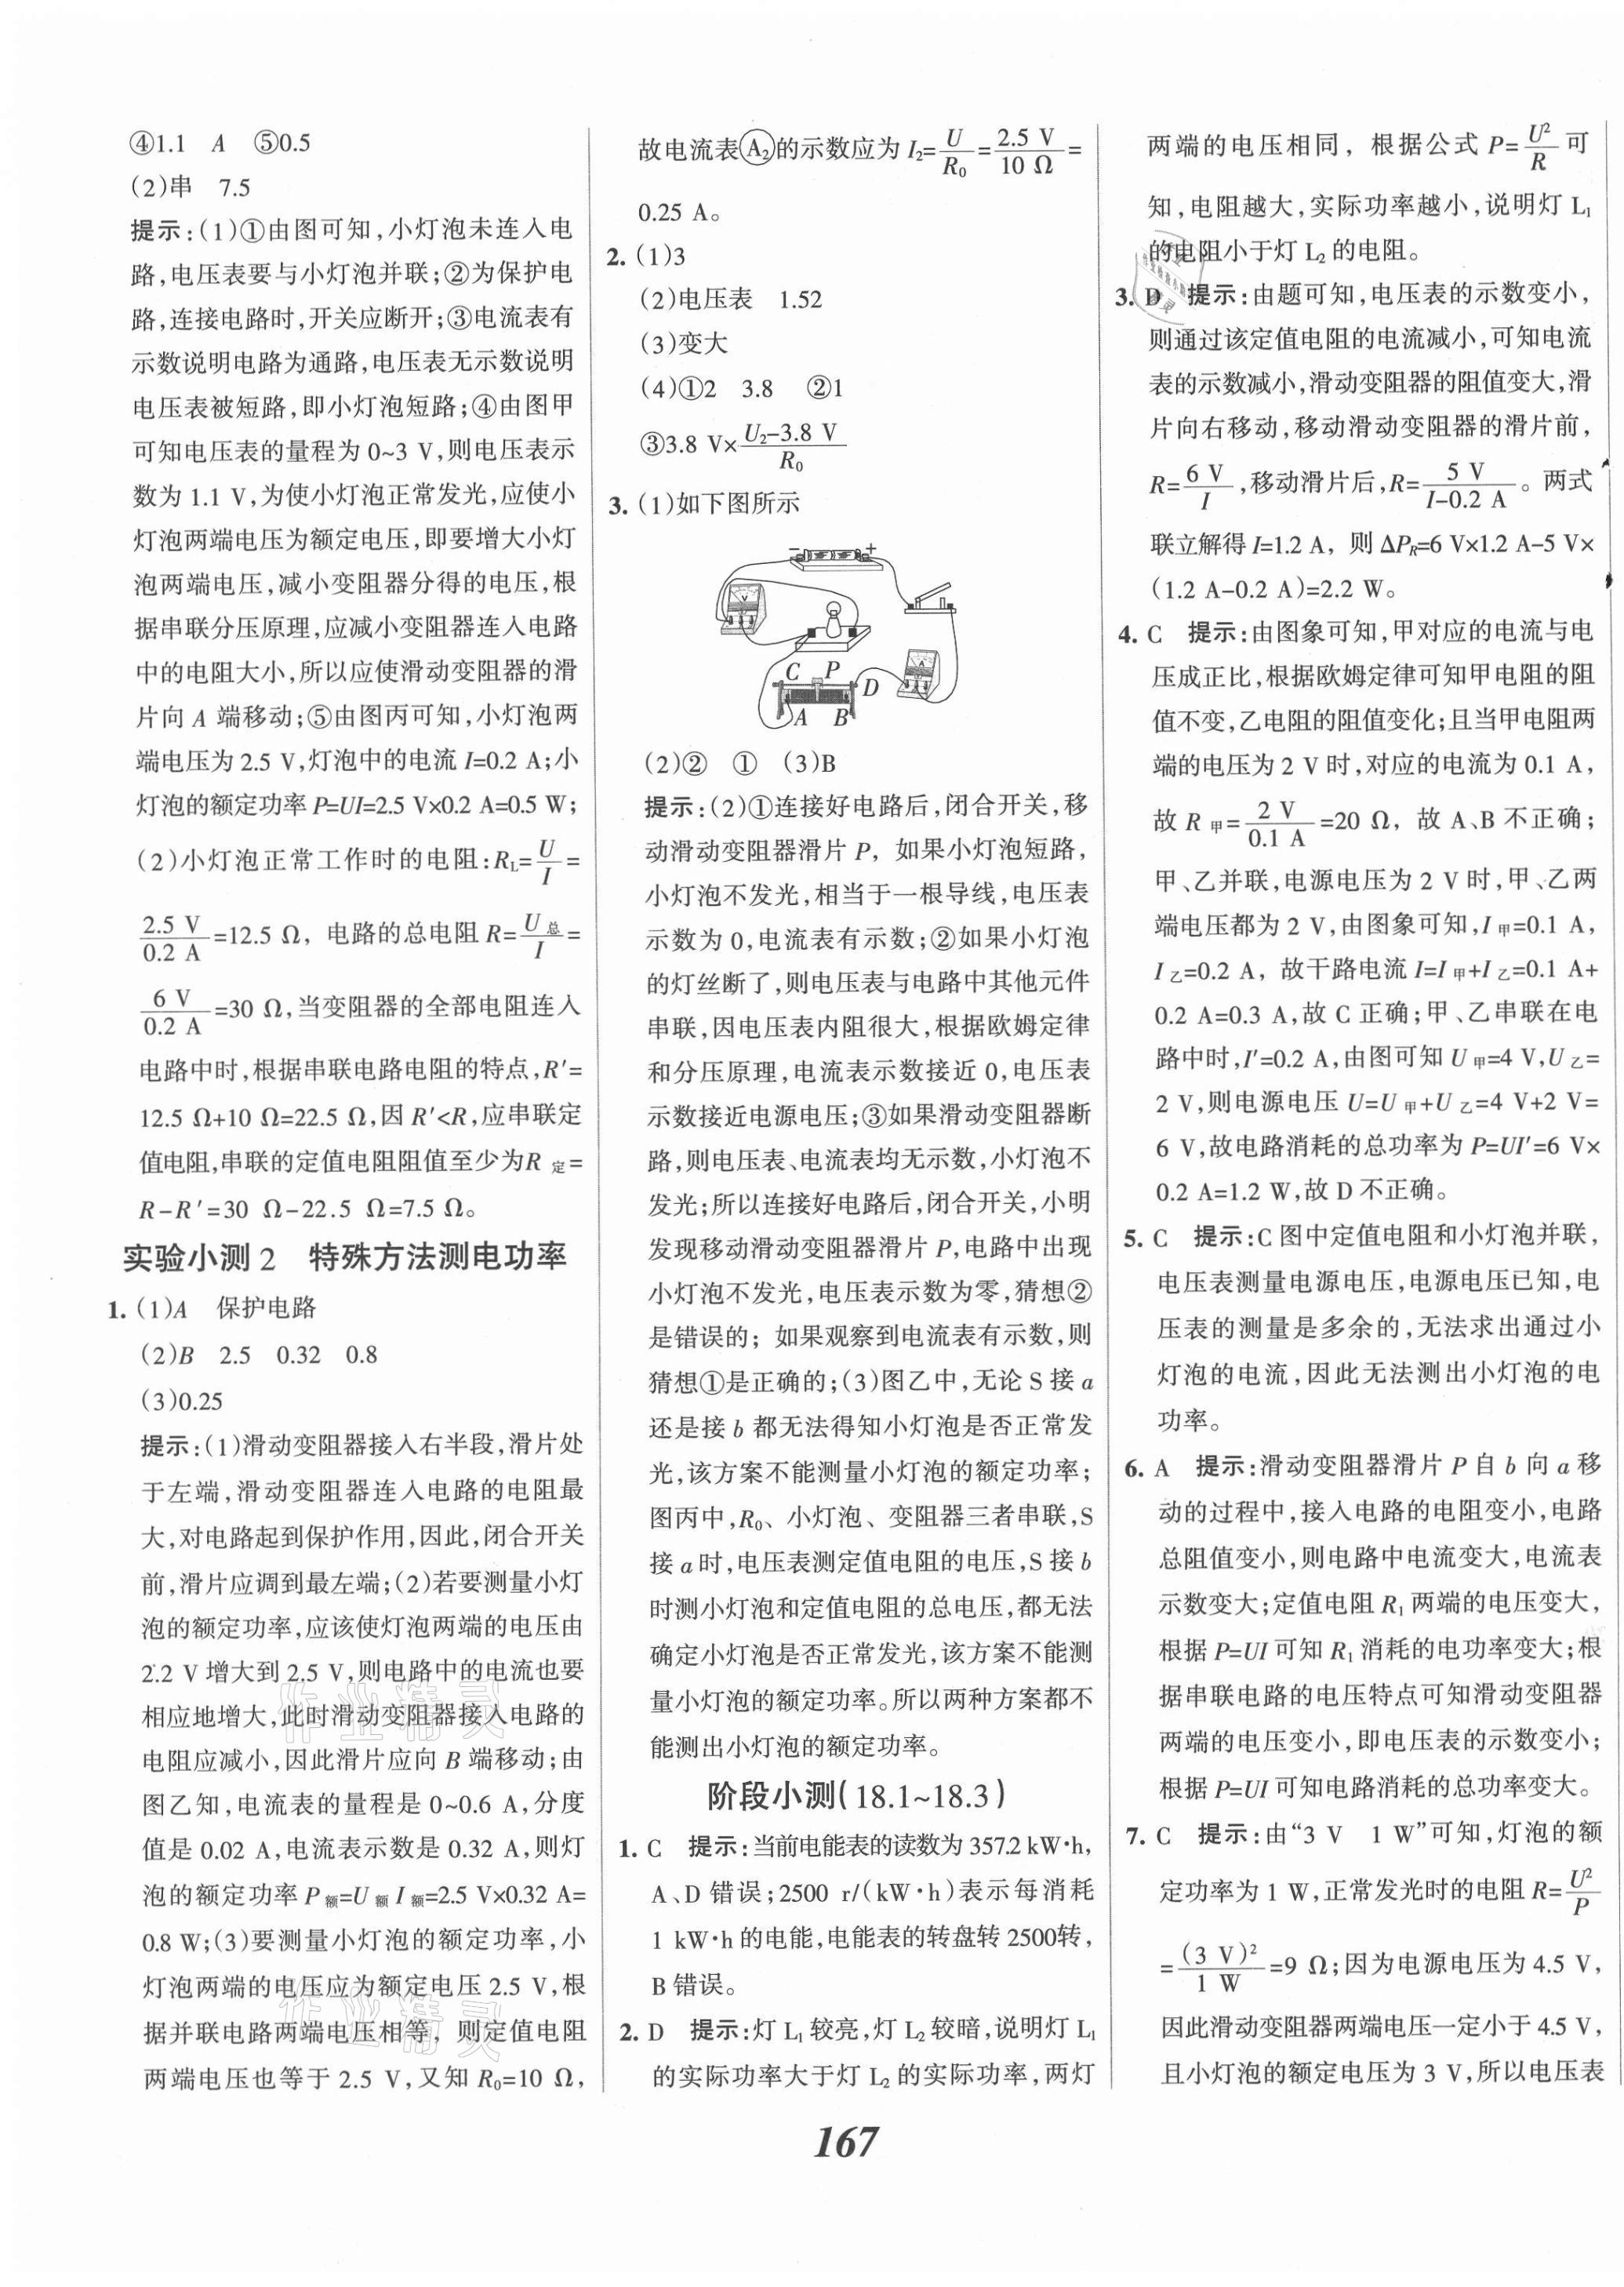 ④1.1　A　⑤0.5
(2)串　7.5
提示:(1)①由图可知,小灯泡未连入电
路,电压表要与小灯泡并联;②为保护电
路,连接电路时,开关应断开;③电流表有
示数说明电路为通路,电压表无示数说明
电压表被短路,即小灯泡短路;④由图甲
可知电压表的量程为 0~3 V,则电压表示
数为 1.1 V,为使小灯泡正常发光,应使小
灯泡两端电压为额定电压,即要增大小灯
泡两端电压,减小变阻器分得的电压,根
据串联分压原理,应减小变阻器连入电路
中的电阻大小,所以应使滑动变阻器的滑
片向 A 端移动;⑤由图丙可知,小灯泡两
端电压为 2.5 V,灯泡中的电流 I=0.2 A;小
灯泡的额定功率 P=UI=2.5 V×0.2 A=0.5 W;
(2)小灯泡正常工作时的电阻:R_L=U/I=
2.5 V/0.2 A=12.5 Ω, 电路的总电阻 R=U总/I=
6 V/0.2 A=30 Ω,当变阻器的全部电阻连入
电路中时,根据串联电路电阻的特点,R′=
12.5 Ω+10 Ω=22.5 Ω,因 R′<R,应串联定
值电阻,串联的定值电阻阻值至少为R定=
R-R′=30 Ω-22.5 Ω=7.5 Ω。
实验小测 2　特殊方法测电功率
1. (1)A　保护电路
(2)B　2.5　0.32　0.8
(3)0.25
提示:(1)滑动变阻器接入右半段,滑片处
于左端,滑动变阻器连入电路的电阻最
大,对电路起到保护作用,因此,闭合开关
前,滑片应调到最左端;(2)若要测量小灯
泡的额定功率,应该使灯泡两端的电压由
2.2 V 增大到 2.5 V,则电路中的电流也要
相应地增大,此时滑动变阻器接入电路的
电阻应减小,因此滑片应向 B 端移动;由
图乙知,电流表的量程是 0~0.6 A,分度
值是 0.02 A,电流表示数是 0.32 A,则灯
泡的额定功率 P额=U额 I额=2.5 V×0.32 A=
0.8 W;(3)要测量小灯泡的额定功率,小
灯泡两端的电压应为额定电压 2.5 V,根
据并联电路两端电压相等, 则定值电阻
两端电压也等于 2.5 V,又知 R₀=10 Ω,
故电流表A₂的示数应为 I₂=U/R₀=2.5 V/10 Ω=
0.25 A。
2. (1)3
(2)电压表　1.52
(3)变大
(4)①2　3.8　②1
③3.8 V×(U₂-3.8 V)/R₀
3. (1)如下图所示
－　+
V
C　P
A
D
A　B
(2)②　①　(3)B
提示:(2)①连接好电路后,闭合开关,移
动滑动变阻器滑片 P, 如果小灯泡短路,
小灯泡不发光,相当于一根导线,电压表
示数为 0,电流表有示数;②如果小灯泡
的灯丝断了,则电压表与电路中其他元件
串联,因电压表内阻很大,根据欧姆定律
和分压原理,电流表示数接近 0,电压表
示数接近电源电压;③如果滑动变阻器断
路,则电压表、电流表均无示数,小灯泡不
发光;所以连接好电路后,闭合开关,小明
发现移动滑动变阻器滑片 P,电路中出现
小灯泡不发光,电压表示数为零,猜想②
是错误的; 如果观察到电流表有示数,则
猜想①是正确的;(3)图乙中,无论 S 接 a
还是接 b 都无法得知小灯泡是否正常发
光,该方案不能测量小灯泡的额定功率;
图丙中,R₀、小灯泡、变阻器三者串联,S
接 a 时,电压表测定值电阻的电压,S 接 b
时测小灯泡和定值电阻的总电压,都无法
确定小灯泡是否正常发光,该方案不能测
量小灯泡的额定功率。所以两种方案都不
能测出小灯泡的额定功率。
阶段小测(18.1~18.3)
1. C　提示:当前电能表的读数为 357.2 kW·h,
A、D 错误;2500 r/(kW·h)表示每消耗
1 kW·h 的电能,电能表的转盘转 2500转,
B 错误。
2. D　提示:灯 L₁ 较亮,灯 L₂ 较暗,说明灯 L₁
的实际功率大于灯 L₂ 的实际功率,两灯
两端的电压相同, 根据公式 P=U²/R 可
知,电阻越大,实际功率越小,说明灯 L₁
的电阻小于灯 L₂ 的电阻。
3. D　提示:由题可知,电压表的示数变小,
则通过该定值电阻的电流减小,可知电流
表的示数减小,滑动变阻器的阻值变大,滑
片向右移动,移动滑动变阻器的滑片前,
R=6 V/I,移动滑片后,R=5 V/(I-0.2 A)。两式
联立解得 I=1.2 A, 则 ΔP_R=6 V×1.2 A-5 V×
(1.2 A-0.2 A)=2.2 W。
4. C　提示:由图象可知,甲对应的电流与电
压成正比,根据欧姆定律可知甲电阻的阻
值不变,乙电阻的阻值变化;且当甲电阻两
端的电压为 2 V 时,对应的电流为 0.1 A,
故 R甲=2 V/0.1 A=20 Ω, 故 A、B 不正确;
甲、乙并联,电源电压为 2 V 时,甲、乙两
端电压都为 2 V,由图象可知,I甲=0.1 A,
I乙=0.2 A, 故干路电流 I=I甲+I乙=0.1 A+
0.2 A=0.3 A,故 C 正确;甲、乙串联在电
路中时,I′=0.2 A,由图可知 U甲=4 V,U乙=
2 V,则电源电压 U=U甲+U乙=4 V+2 V=
6 V,故电路消耗的总功率为 P=UI′=6 V×
0.2 A=1.2 W,故 D 不正确。
5. C　提示:C 图中定值电阻和小灯泡并联,
电压表测量电源电压,电源电压已知,电
压表的测量是多余的,无法求出通过小
灯泡的电流,因此无法测出小灯泡的电
功率。
6. A　提示:滑动变阻器滑片 P 自 b 向 a 移
动的过程中,接入电路的电阻变小,电路
总阻值变小,则电路中电流变大,电流表
示数变大;定值电阻 R₁ 两端的电压变大,
根据 P=UI 可知 R₁ 消耗的电功率变大;根
据串联电路的电压特点可知滑动变阻器
两端的电压变小,即电压表的示数变小;
根据 P=UI 可知电路消耗的总功率变大。
7. C　提示:由“3 V　1 W”可知,灯泡的额
定功率为 1 W,正常发光时的电阻 R=U²/P
=(3 V)²/1 W=9 Ω;因为电源电压为 4.5 V,
因此滑动变阻器两端电压一定小于 4.5 V,
且小灯泡的额定电压为 3 V,所以电压表
167
作业精灵
作业精灵